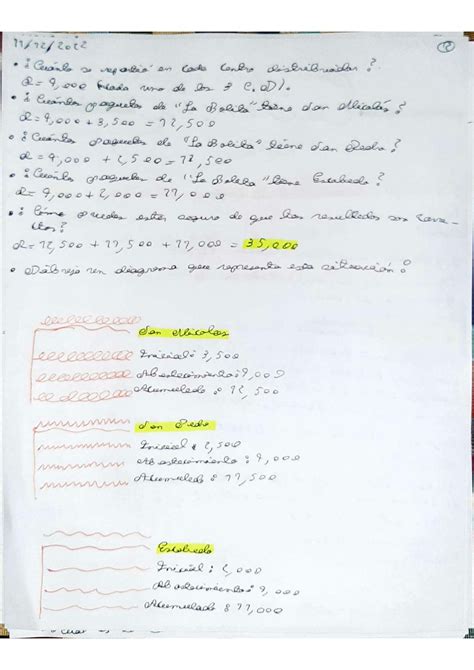 11/12/2022
12
• ¿Cuánto se repatió en cada centro distribuidor?
R= 9,000 #cada uno de los 3 C.D.
• ¿Cuántos paquetes de "La Bolita" tiene San Nicolás?
R= 9,000 + 3,500 = 12,500
• ¿Cuántos paquetes de "La Bolita" tiene San Pedro?
R= 9,000 + 2,500 = 11,500
• ¿Cuántos paquetes de "La Bolita" tiene Escobedo?
R= 9,000 + 2,000 = 11,000
• ¿Cómo puedes estar seguro de que los resultados son corre-
ctos?
R= 12,500 + 11,500 + 11,000 = 35,000
• Dibuja un diagrama que represente esta situación:
San Nicolás
Inicial: 3,500
Abastecimiento: 9,000
Acumulado: 12,500
San Pedro
Inicial: 2,500
Abastecimiento: 9,000
Acumulado: 11,500
Escobedo
Inicial: 2,000
Abastecimiento: 9,000
Acumulado: 11,000